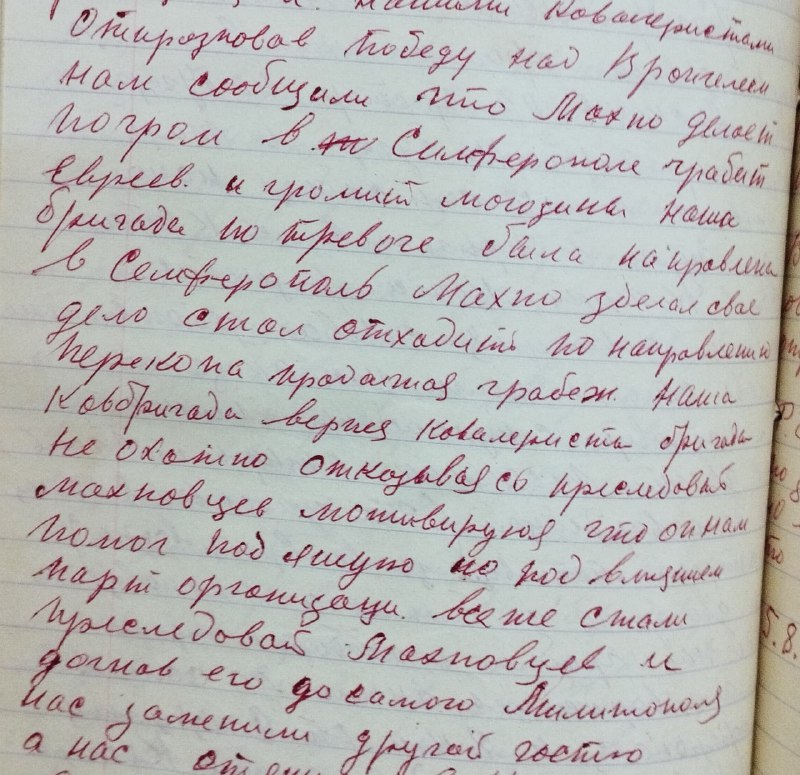 нашими Ковалеристами
Отпрозновав победу над Врангелем
нам сообщили что Махно делает
погром в Семферополе грабит
Евреев. и громит могозины наша
бригада по тревоге была направлена
в Семферополь Махно зделал свое
дело стал отходить по направлению
Перекопа продолжая грабеж наша
Ковбригада вернея Ковалериста бригады
не охотно отказываясь преследоват
махновцев мотивируюя что он нам
помог под но под влиянием
парт организаци. все же стали
преследоват Махновцев и
догнав его до самого Милитополя
нас заменили другой частю
а нас